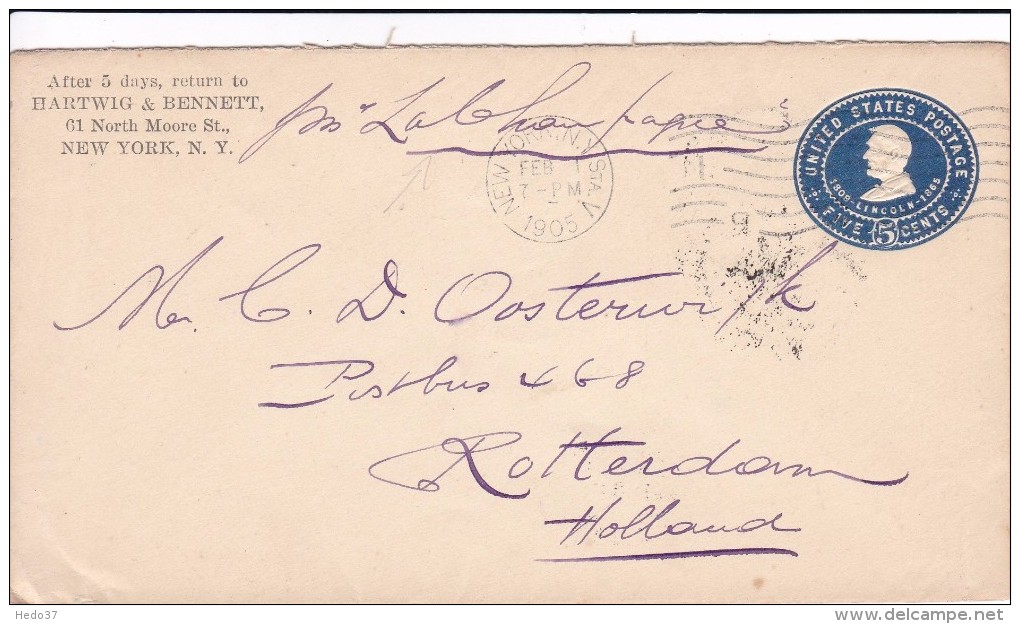 After 5 days, return to
HARTWIG & BENNETT,
61 North Moore St.,
NEW YORK, N. Y.
per "La Champagne"
NEW YORK, N.Y. STA. V
FEB 1
7-PM
1905
UNITED STATES POSTAGE
1809-LINCOLN-1865
FIVE 5 CENTS
Mr. C. D. Oosterwijk
Postbus 468
Rotterdam
Holland
Hedo37
www.delcampe.net